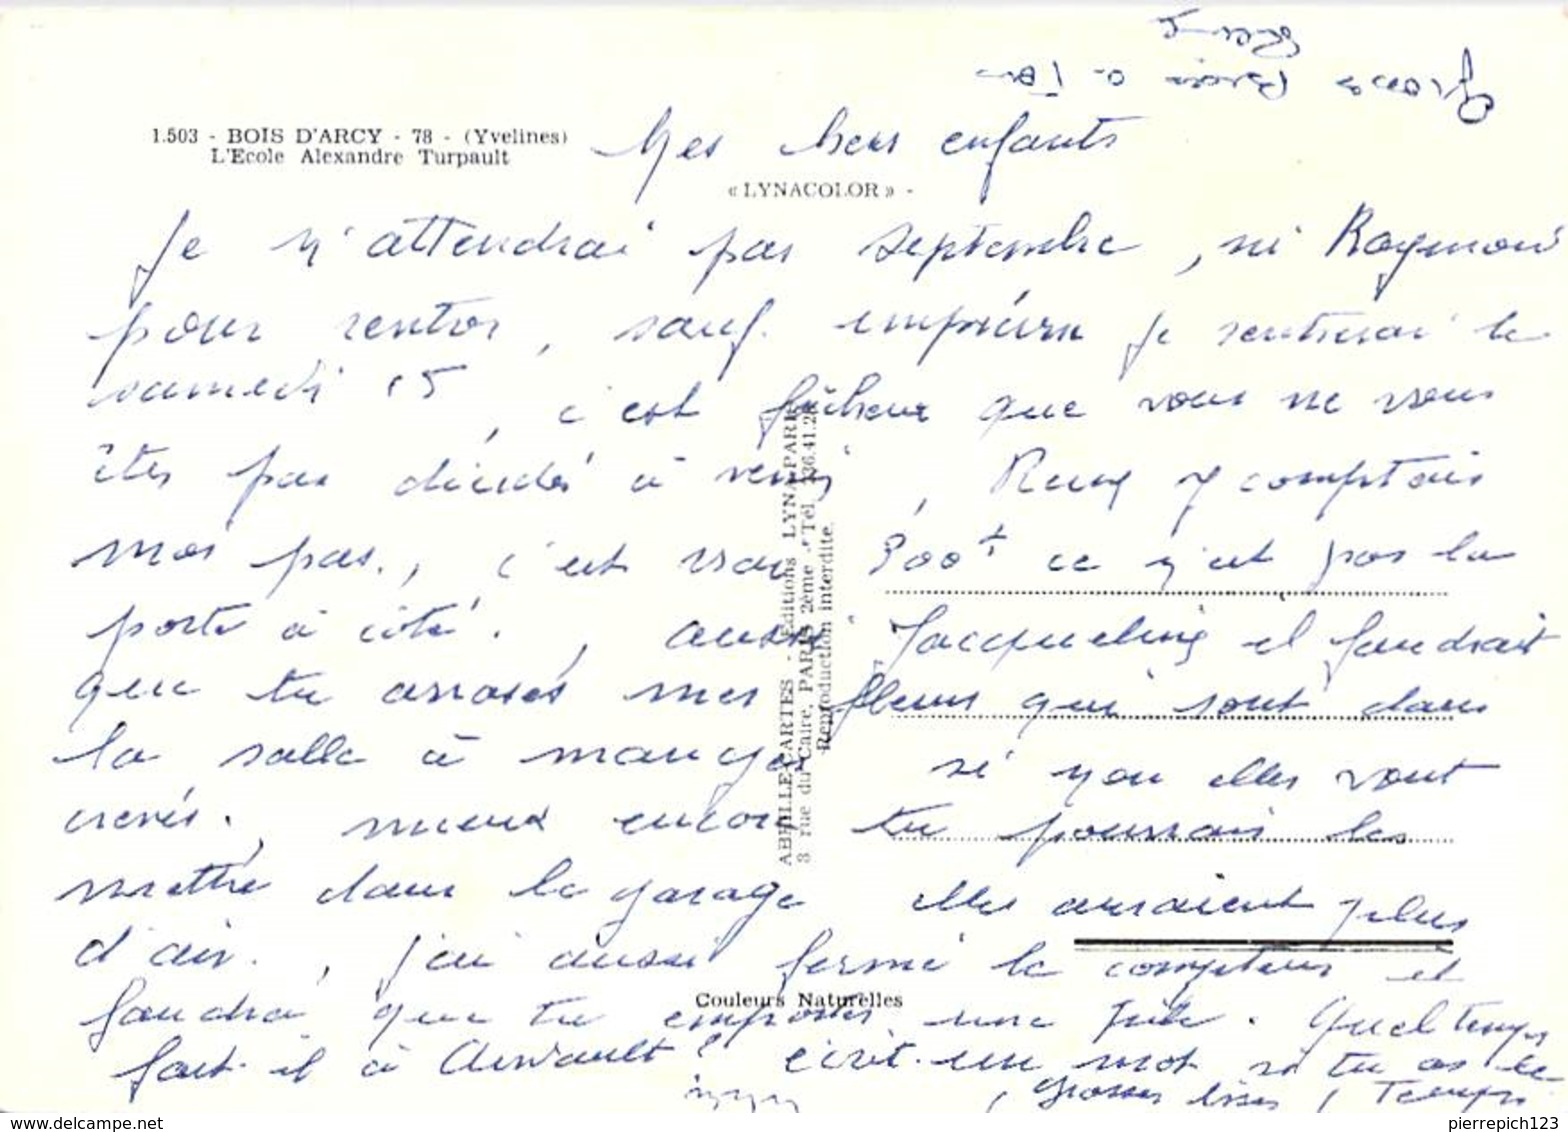 1.503 - BOIS D'ARCY - 78 - (Yvelines)
L'Ecole Alexandre Turpault
«LYNACOLOR» -
Mes chers enfants
Je n'attendrai pas septembre, ni Raymond
pour rentrer, sauf imprévu je rentrerai le
samedi 15, c'est fâcheux que vous ne vous
êtes pas décidés à venir, Remy y comptais
moi pas., c'est vrai ce n'est pas la
porte à côté., aussi Jacqueline il faudrait
que tu arroses mes fleurs qui sont dans
la salle à manger si non elles vont
crever., mieux encore tu pourrais les
mettre dans le garage elles auraient plus
d'air., j'ai aussi fermé le compteur et
faudra que tu emportes une pile. Quel temps
fait-il à Airvault? écrit-un mot si tu as le
temps, grosses bises,
Gros bisou à
ABEILLE-CARTES - Editions LYNA-PARIS
3 rue du Caire, PARIS 2ème - Tél. 236.41.28
Reproduction interdite.
Couleurs Naturelles
pierrepich123